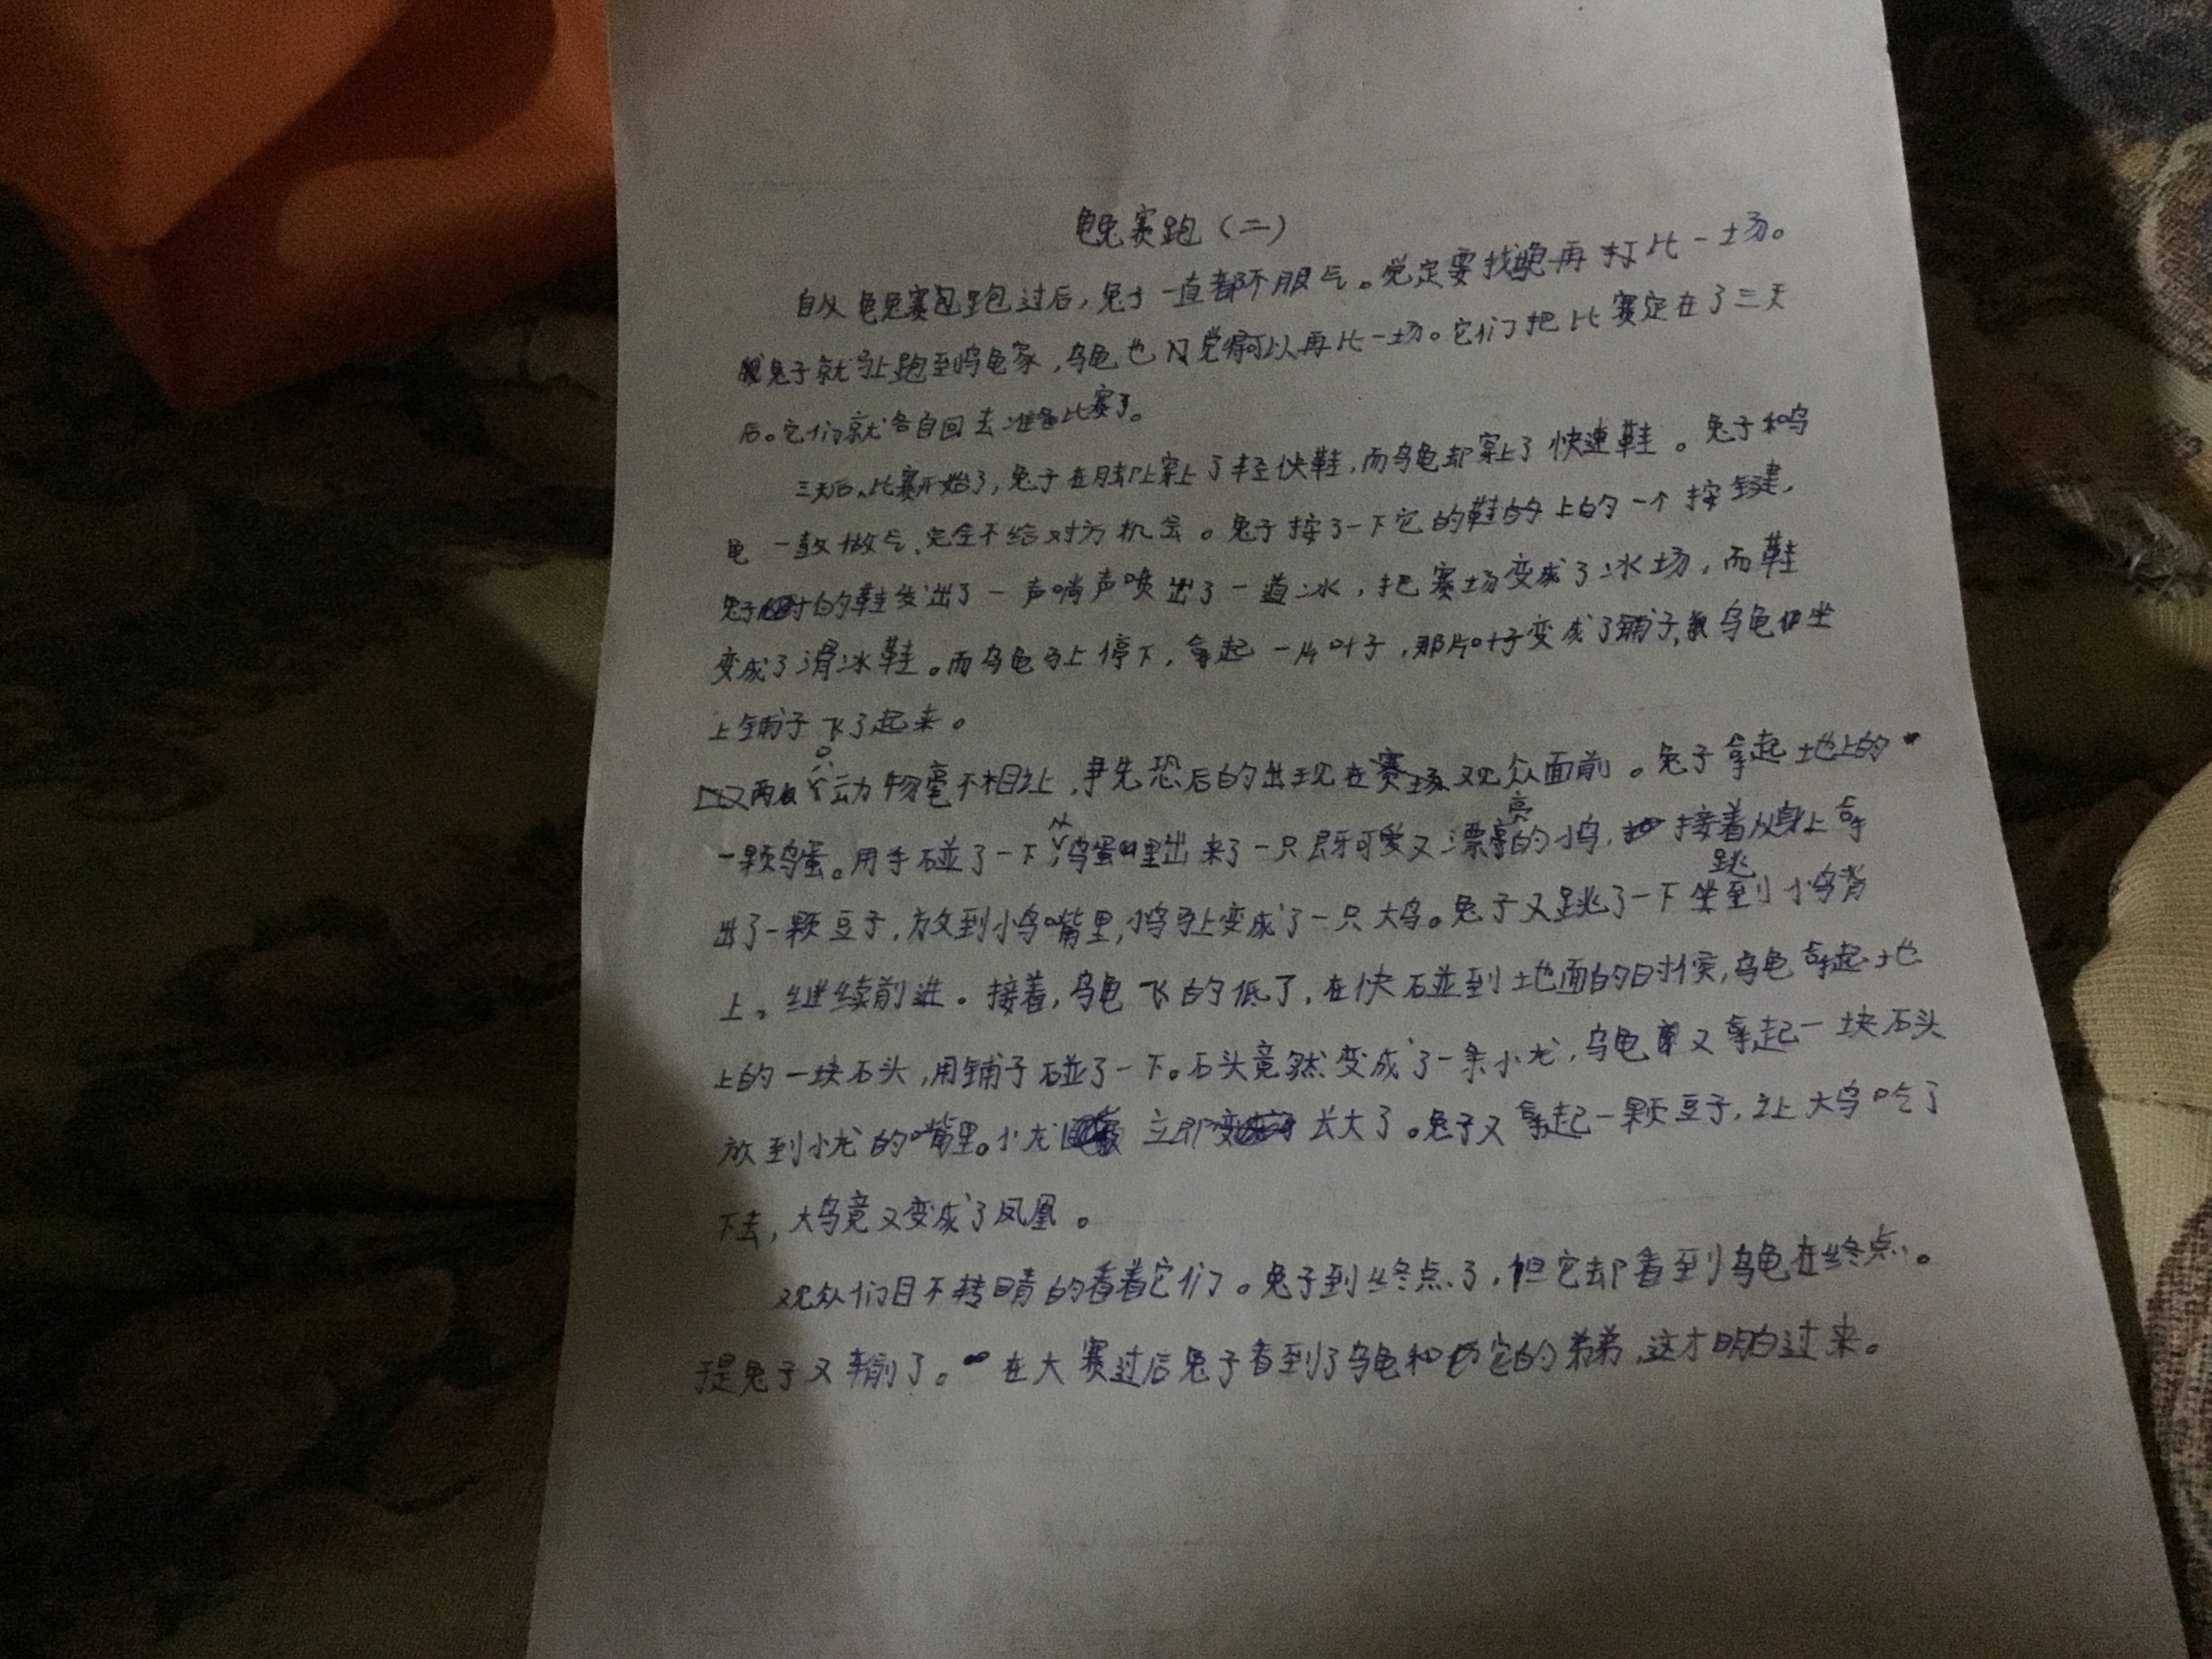 龟兔赛跑（二）
自从龟兔赛跑过后，兔子一直都不服气。觉定要找龟再打比一场。
兔子就马上跑到乌龟家，乌龟也觉得可以再比一场。它们把比赛定在了三天
后。它们就各自回去准备比赛了。
三天后，比赛开始了，兔子在脚上穿上了轻快鞋，而乌龟却穿上了快速鞋。兔子和乌
龟一鼓做气，完全不给对方机会。兔子按了一下它的鞋的上的一个按键，
兔子的鞋发出了一声哨声喷出了一道冰，把赛场变成了冰场，而鞋
变成了滑冰鞋。而乌龟马上停下，拿起一片叶子，那片叶子变成了铺子，乌龟坐
上铺子飞了起来。
两只动物毫不相让，争先恐后的出现在赛场观众面前。兔子拿起地上的
一颗鸟蛋。用手碰了一下，从鸟蛋里出来了一只既可爱又漂亮的小鸟，接着从身上拿
出了一颗豆子，放到小鸟嘴里，小鸟马上变成了一只大鸟。兔子又跳了一下跳到小鸟背
上。继续前进。接着，乌龟飞的低了，在快碰到地面的时候，乌龟拿起地
上的一块石头，用铺子碰了一下。石头竟然变成了一条小龙，乌龟又拿起一块石头
放到小龙的嘴里。小龙立即变长大了。兔子又拿起一颗豆子，让大鸟吃了
下去，大鸟竟又变成了凤凰。
观众们目不转睛的看着它们。兔子到终点了，但它却看到乌龟在终点。
于是兔子又输了。在大赛过后兔子看到了乌龟和它的弟弟，这才明白过来。